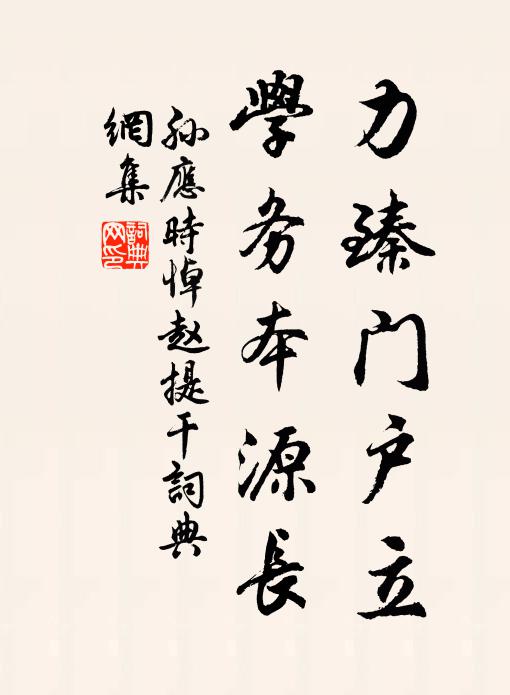 力臻门户立
学务本源長
孙應時悼赵提干詞典
網集
詞典
网印